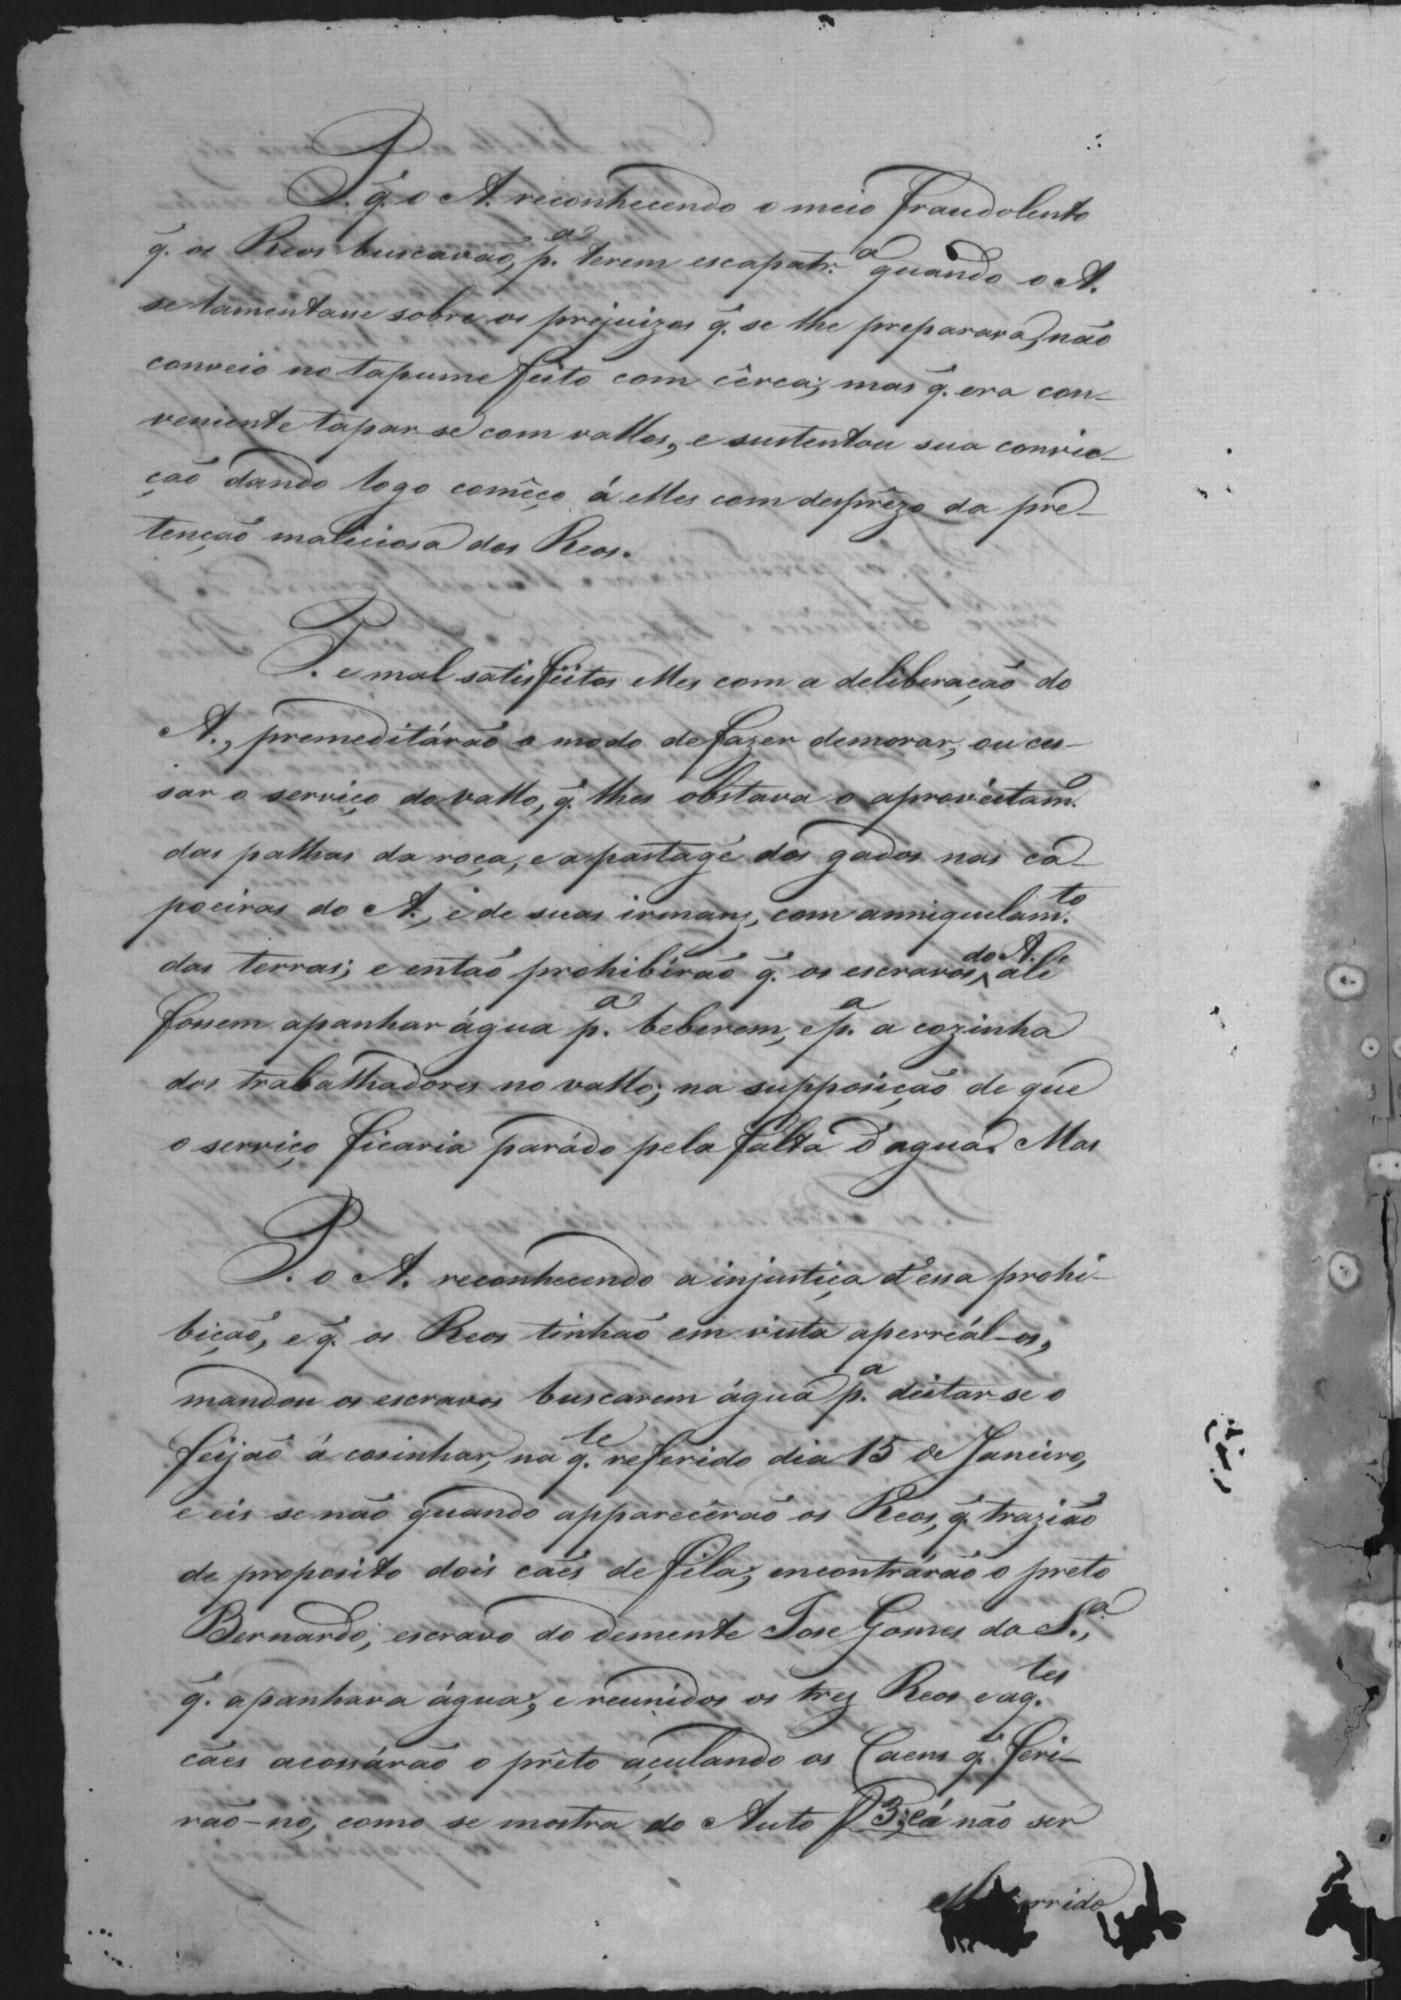 P. q̃. o A. reconhecendo o meio fraudolento
q̃. os Reos buscavaõ, p.ª terem escapatr.ª quando o A.
se lamentasse sobre os prejuizos q̃. se lhe preparava, não
conveio no tapume feito com cêrca; mas q̃. era con-
veniente tapar-se com vallos, e sustentou sua convic-
çaõ dando logo comêço á elles com desprêzo da pre-
tençaõ maliciosa dos Reos.
P. e mal satisfeitos elles com a deliberaçaõ do
A., premeditáraõ o modo de fazer demorar, ou ces-
sar o serviço do vallo, q̃. lhes obstava o aproveitam.º
das palhas da roça, e a pastagẽ dos gados nas ca-
poeiras do A., e de suas irmans, com anniquilam.to
das terras; e entaõ prohibiraõ q̃. os escravos do A. ali
fossem apanhar água p.ª beberem, e p.ª a cozinha
dos trabalhadores no vallo; na supposiçaõ de que
o serviço ficaria parádo pela falta d'agua. Mas
P. o A. reconhecendo a injustiça d'essa prohi-
biçaõ, e q̃. os Reos tinhaõ em vista aperreál-os,
mandou os escravos buscarem água p.ª deitar-se o
feijaõ á cosinhar, na q.te referido dia 15 de Janeiro,
e eis se não quando apparecêraõ os Reos, q̃. traziaõ
de proposito dois cães de fila; encontráraõ o preto
Bernardo, escravo do demente Jose Gomes da S.ª,
q̃. apanhava água; e reunidos os trez Reos e aq.tes
cães acossáraõ o prêto açulando os Caens q̃. feri-
raõ-no, como se mostra do Auto f 3; e á não ser